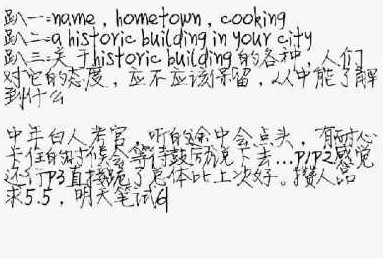 趴一:name, hometown, cooking
趴二:a historic building in your city
趴三:关于historic building的各种,人们
对它的态度,应不应该保留,从中能了解
到什么
中年白人考官,听的途中会点头,有耐心
卡住的时候会等待鼓励说下去...P1P2感觉
还行P3直接跪了总体比上次好。攒人品
求5.5,明天笔试6